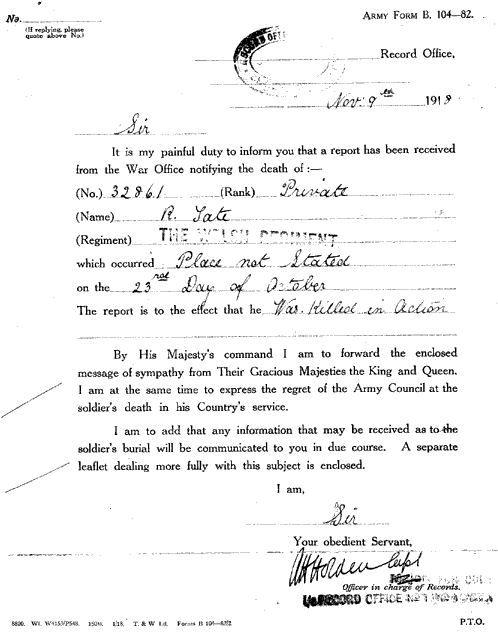 No.
ARMY FORM B. 104—82.
(If replying, please
quote above No.)
RECORD OFFICE
Record Office,
Nov: 9th 1918
Sir
It is my painful duty to inform you that a report has been received
from the War Office notifying the death of :—
(No.) 32861 (Rank) Private
(Name) R. Tate
(Regiment) THE WELSH REGIMENT
which occurred Place not Stated
on the 23rd Day of October
The report is to the effect that he Was Killed in Action
By His Majesty's command I am to forward the enclosed
message of sympathy from Their Gracious Majesties the King and Queen.
I am at the same time to express the regret of the Army Council at the
soldier's death in his Country's service.
I am to add that any information that may be received as to the
soldier's burial will be communicated to you in due course. A separate
leaflet dealing more fully with this subject is enclosed.
I am,
Sir
Your obedient Servant,
Capt
Officer in charge of Records.
RECORD OFFICE
P.T.O.